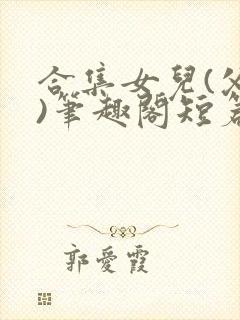 合集女兒(父
)筆趣閣短篇
郭愛霞